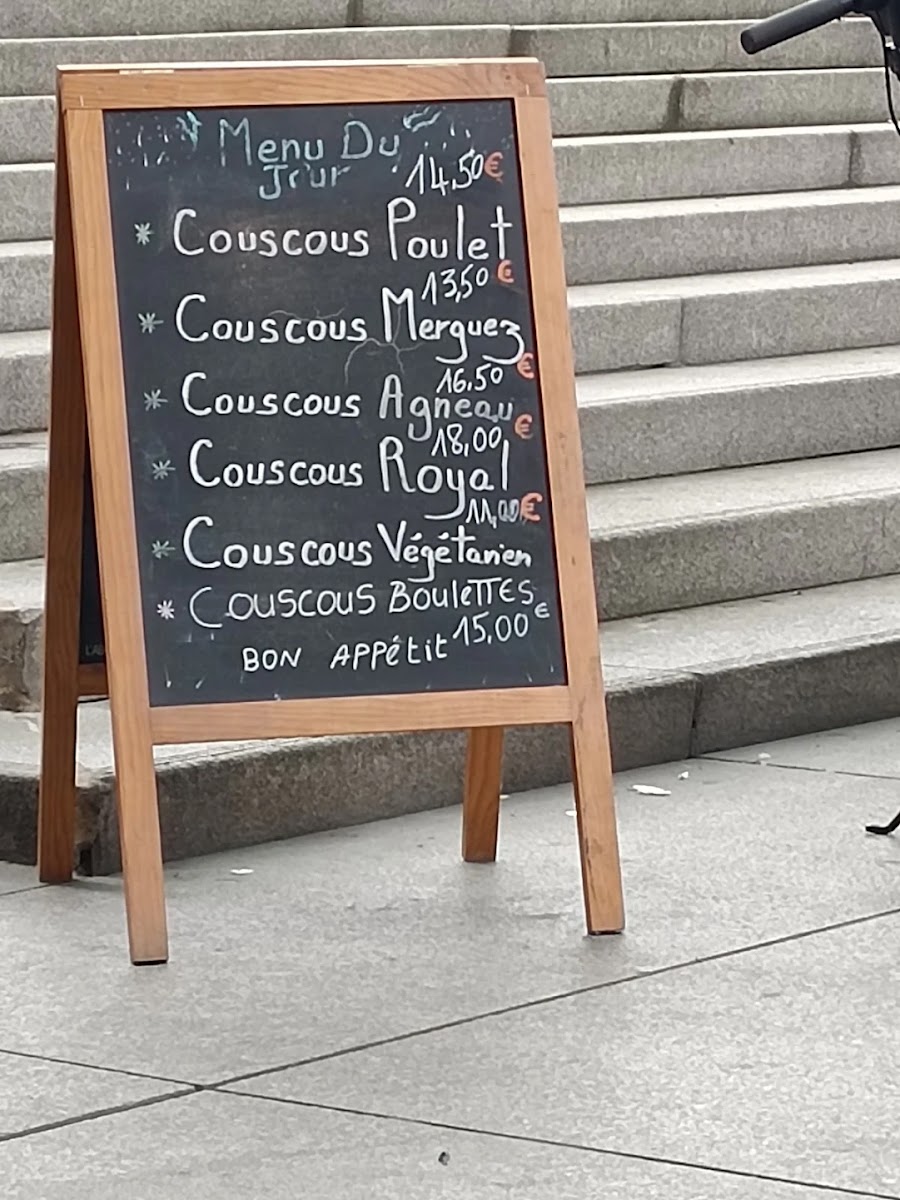 Menu Du
Jour
14.50€
* Couscous Poulet
13,50€
* Couscous Merguez
16.50€
* Couscous Agneau
18,00€
* Couscous Royal
11,00€
* Couscous Végétarien
* COUSCOUS BOULETTES
BON APPétit 15,00€